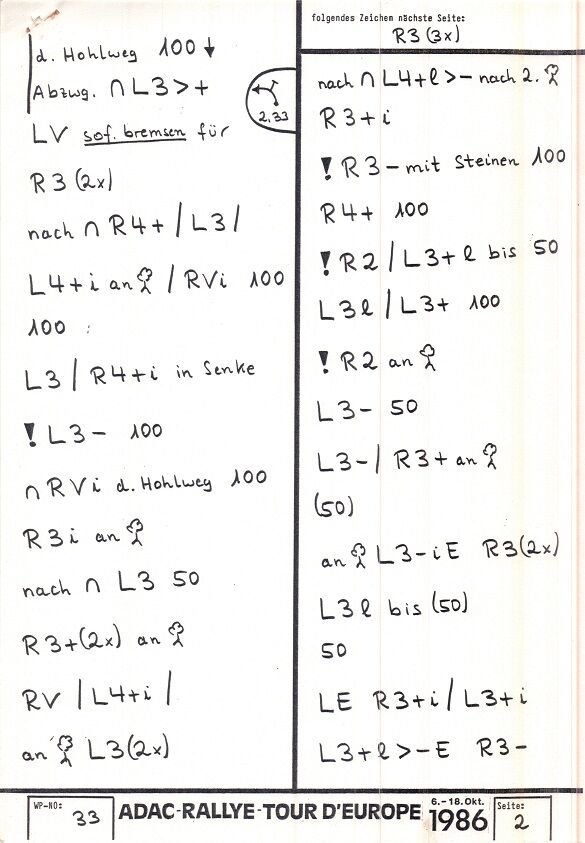 d. Hohlweg 100 ↓
Abzwg. ∩ L3 > +
2,33
LV sof. bremsen für
R3 (2x)
nach ∩ R4+ / L3 /
L4+i an / RVi 100
100
L3 / R4+i in Senke
! L3- 100
∩ RVi d. Hohlweg 100
R3i an
nach ∩ L3 50
R3+(2x) an
RV / L4+i /
an L3(2x)
folgendes Zeichem nächste Seite:
R3 (3x)
nach ∩ L4+l > - nach 2.
R3+i
! R3- mit Steinen 100
R4+ 100
! R2 / L3+l bis 50
L3l / L3+ 100
! R2 an
L3- 50
L3- / R3+ an
(50)
an L3-iE R3(2x)
L3l bis (50)
50
LE R3+i / L3+i
L3+l > -E R3-
WP-NO: 33
ADAC-RALLYE-TOUR D'EUROPE
6.-18.Okt. 1986
Seite: 2